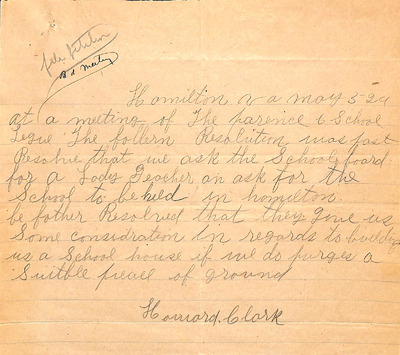 file petition
Bd meeting
Hamilton va may 5-24
at a meeting of The parence & School
Legue The follern Resolution was past
Resolve that we ask the School board
for a Lady Teacher an ask for the
School to be held in homilton
be father Resolved that they give us
Some considration in regards to building
us a School house if we do purges a
Suitble pieace of ground
Howard. Clark